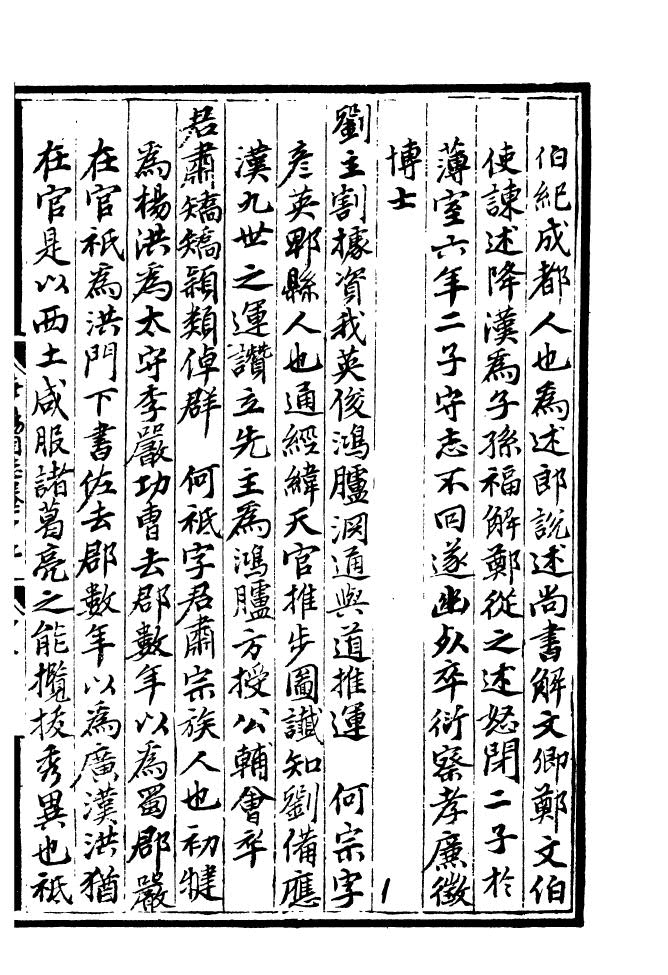 伯紀成都人也為述郎說述尚書解文卿鄭文伯
使諫述降漢為子孫福解鄭從之述怒閉二子於
薄室六年二子守志不回遂幽死卒衍察孝廉徵
博士
劉主割據資我英俊鴻臚洞通與道推運　何宗字
彥英郫縣人也通經緯天官推步圖讖知劉備應
漢九世之運讚立先主為鴻臚方授公輔會卒
君肅矯矯穎類倬群　何祗字君肅宗族人也初犍
為楊洪為太守李嚴功曹去郡數年以為蜀郡嚴
在官祗為洪門下書佐去郡數年以為廣漢洪猶
在官是以西土咸服諸葛亮之能攬拔秀異也祗